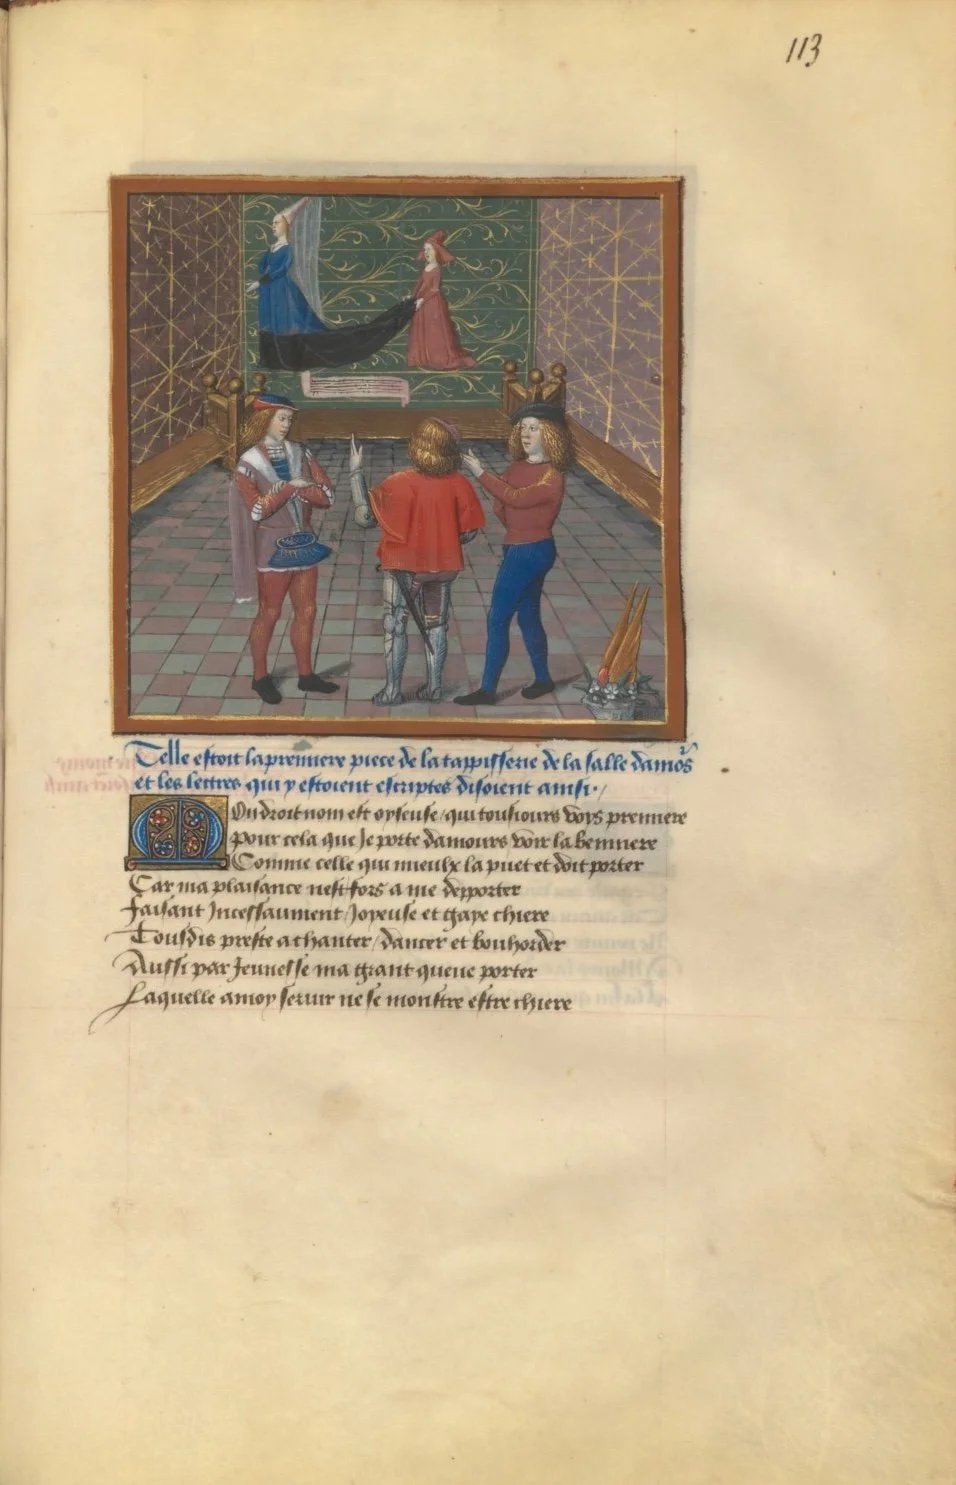 113
Telle estoit la premiere piece de la tappisserie de la salle damors
et les lettres qui y estoient escriptes disoient ainsi
Mon droit nom est oyseuse / qui tousiours voys premiere
Pour cela que Je porte damours voir la bemiere
Comme celle qui mieulx la puet et doit porter
Car ma plaisance nest fors a me depporter
Faisant Incessaument / Joyeuse et gaye chiere
Tousdis preste a chanter / dancer et bouhorder
Aussi par Jeunesse ma grant queue porter
Laquelle a moy seruir ne se monstre estre chiere